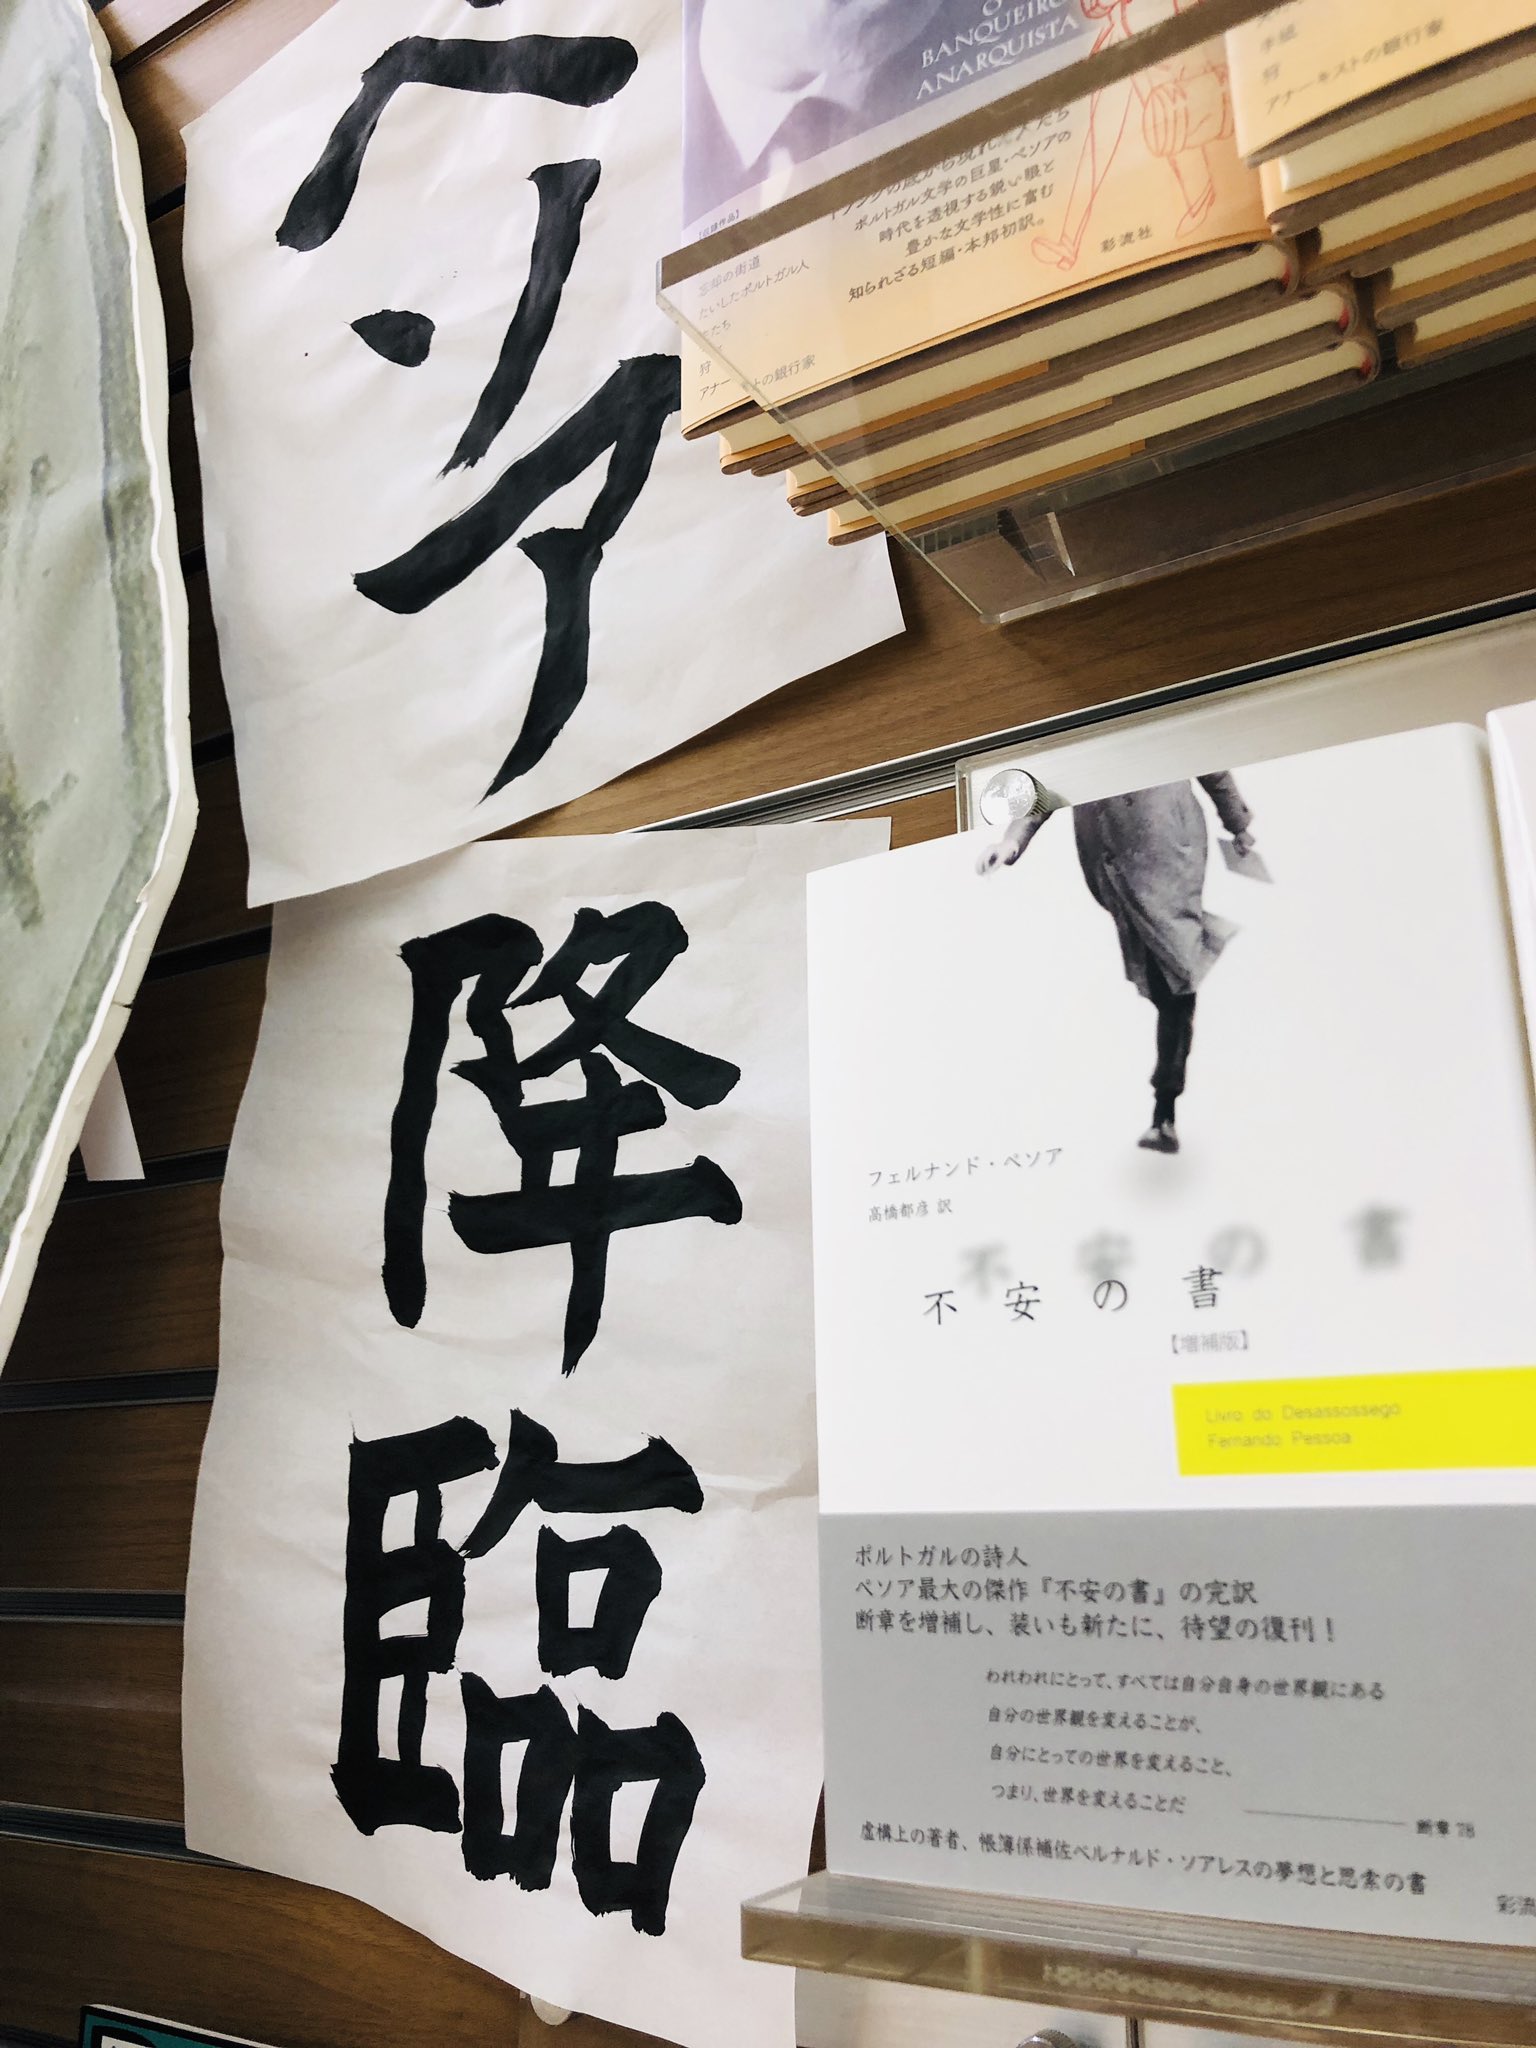 ペソア
降臨
O
BANQUEIRO
ANARQUISTA
ポルトガル文学の巨星・ペソアの
時代を透視する鋭い眼と
豊かな文学性に富む
知られざる短編・本邦初訳。
彩流社
【収録作品】
忘却の街道
たいしたポルトガル人
狩
アナーキストの銀行家
手紙
狩
アナーキストの銀行家
フェルナンド・ペソア
高橋都彦 訳
不安の書
【増補版】
Livro do Desassossego
Fernando Pessoa
ポルトガルの詩人
ペソア最大の傑作『不安の書』の完訳
断章を増補し、装いも新たに、待望の復刊！
われわれにとって、すべては自分自身の世界観にある
自分の世界観を変えることが、
自分にとっての世界を変えること、
つまり、世界を変えることだ
断章 78
虚構上の著者、帳簿係補佐ベルナルド・ソアレスの夢想と思索の書
彩流